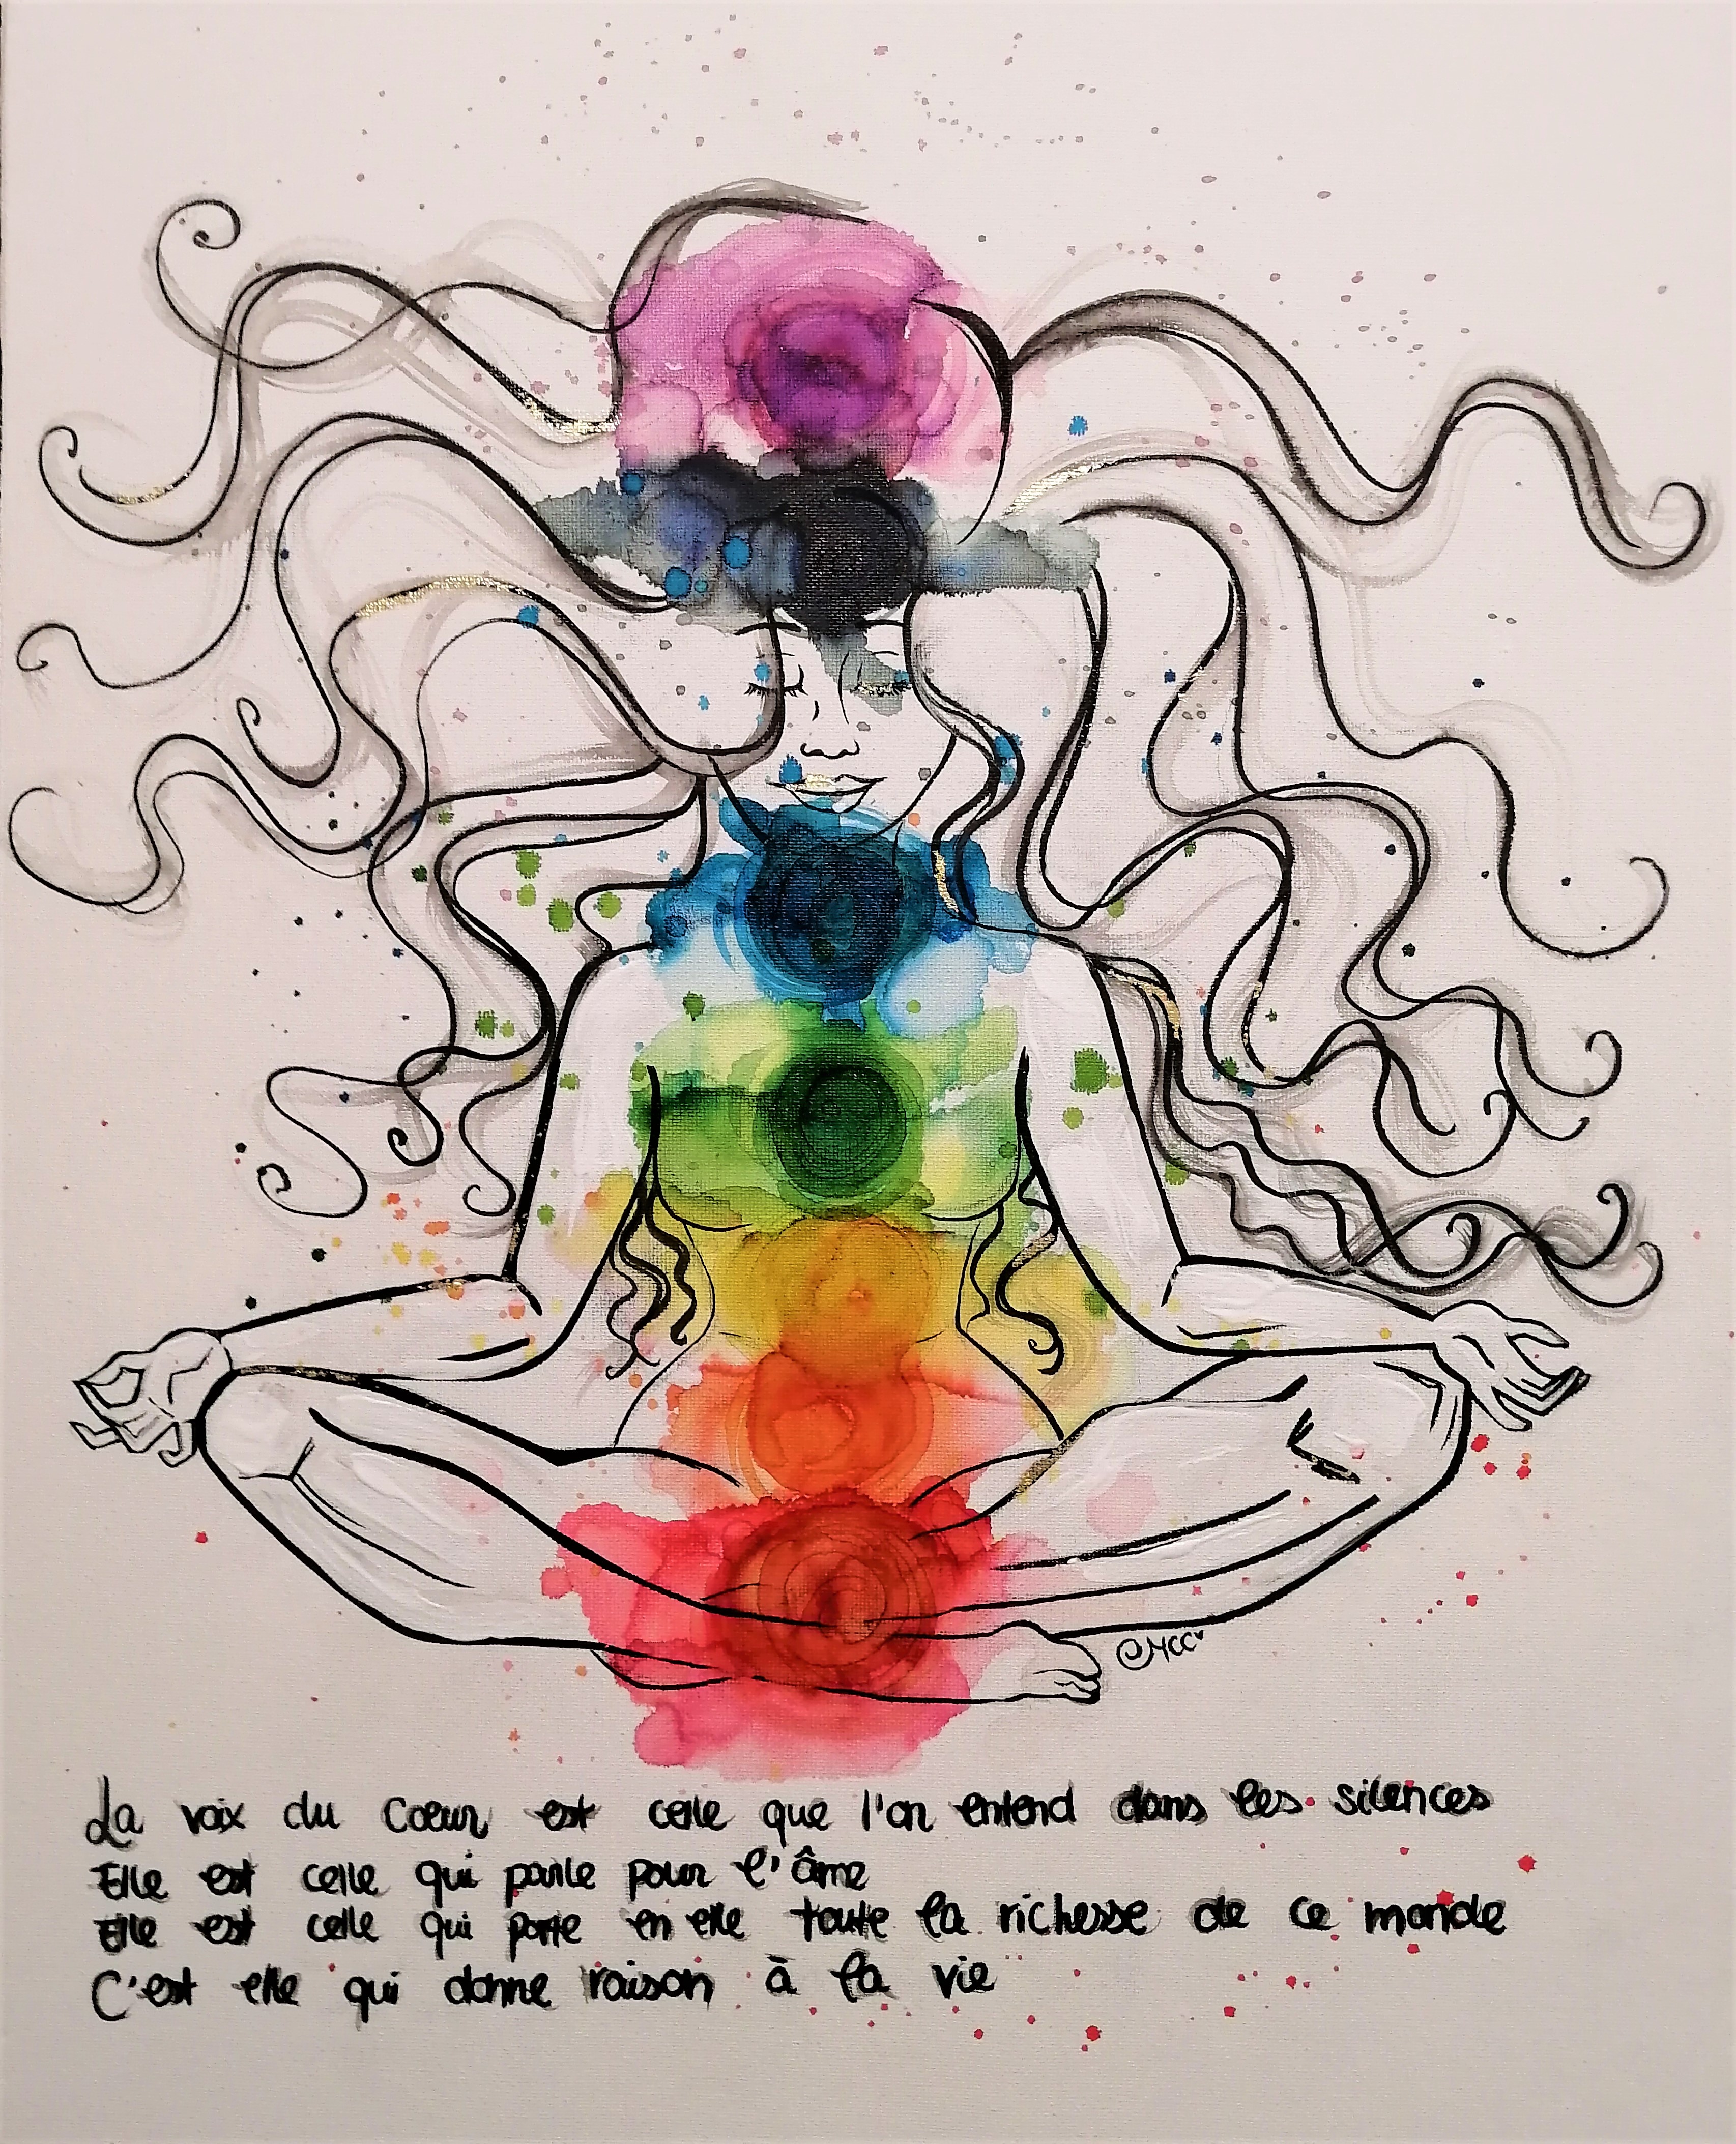 ©MCC
La voix du Coeur est celle que l'on entend dans les silences
Elle est celle qui parle pour l'âme
Elle est celle qui porte en elle toute la richesse de ce monde
C'est elle qui donne raison à la vie